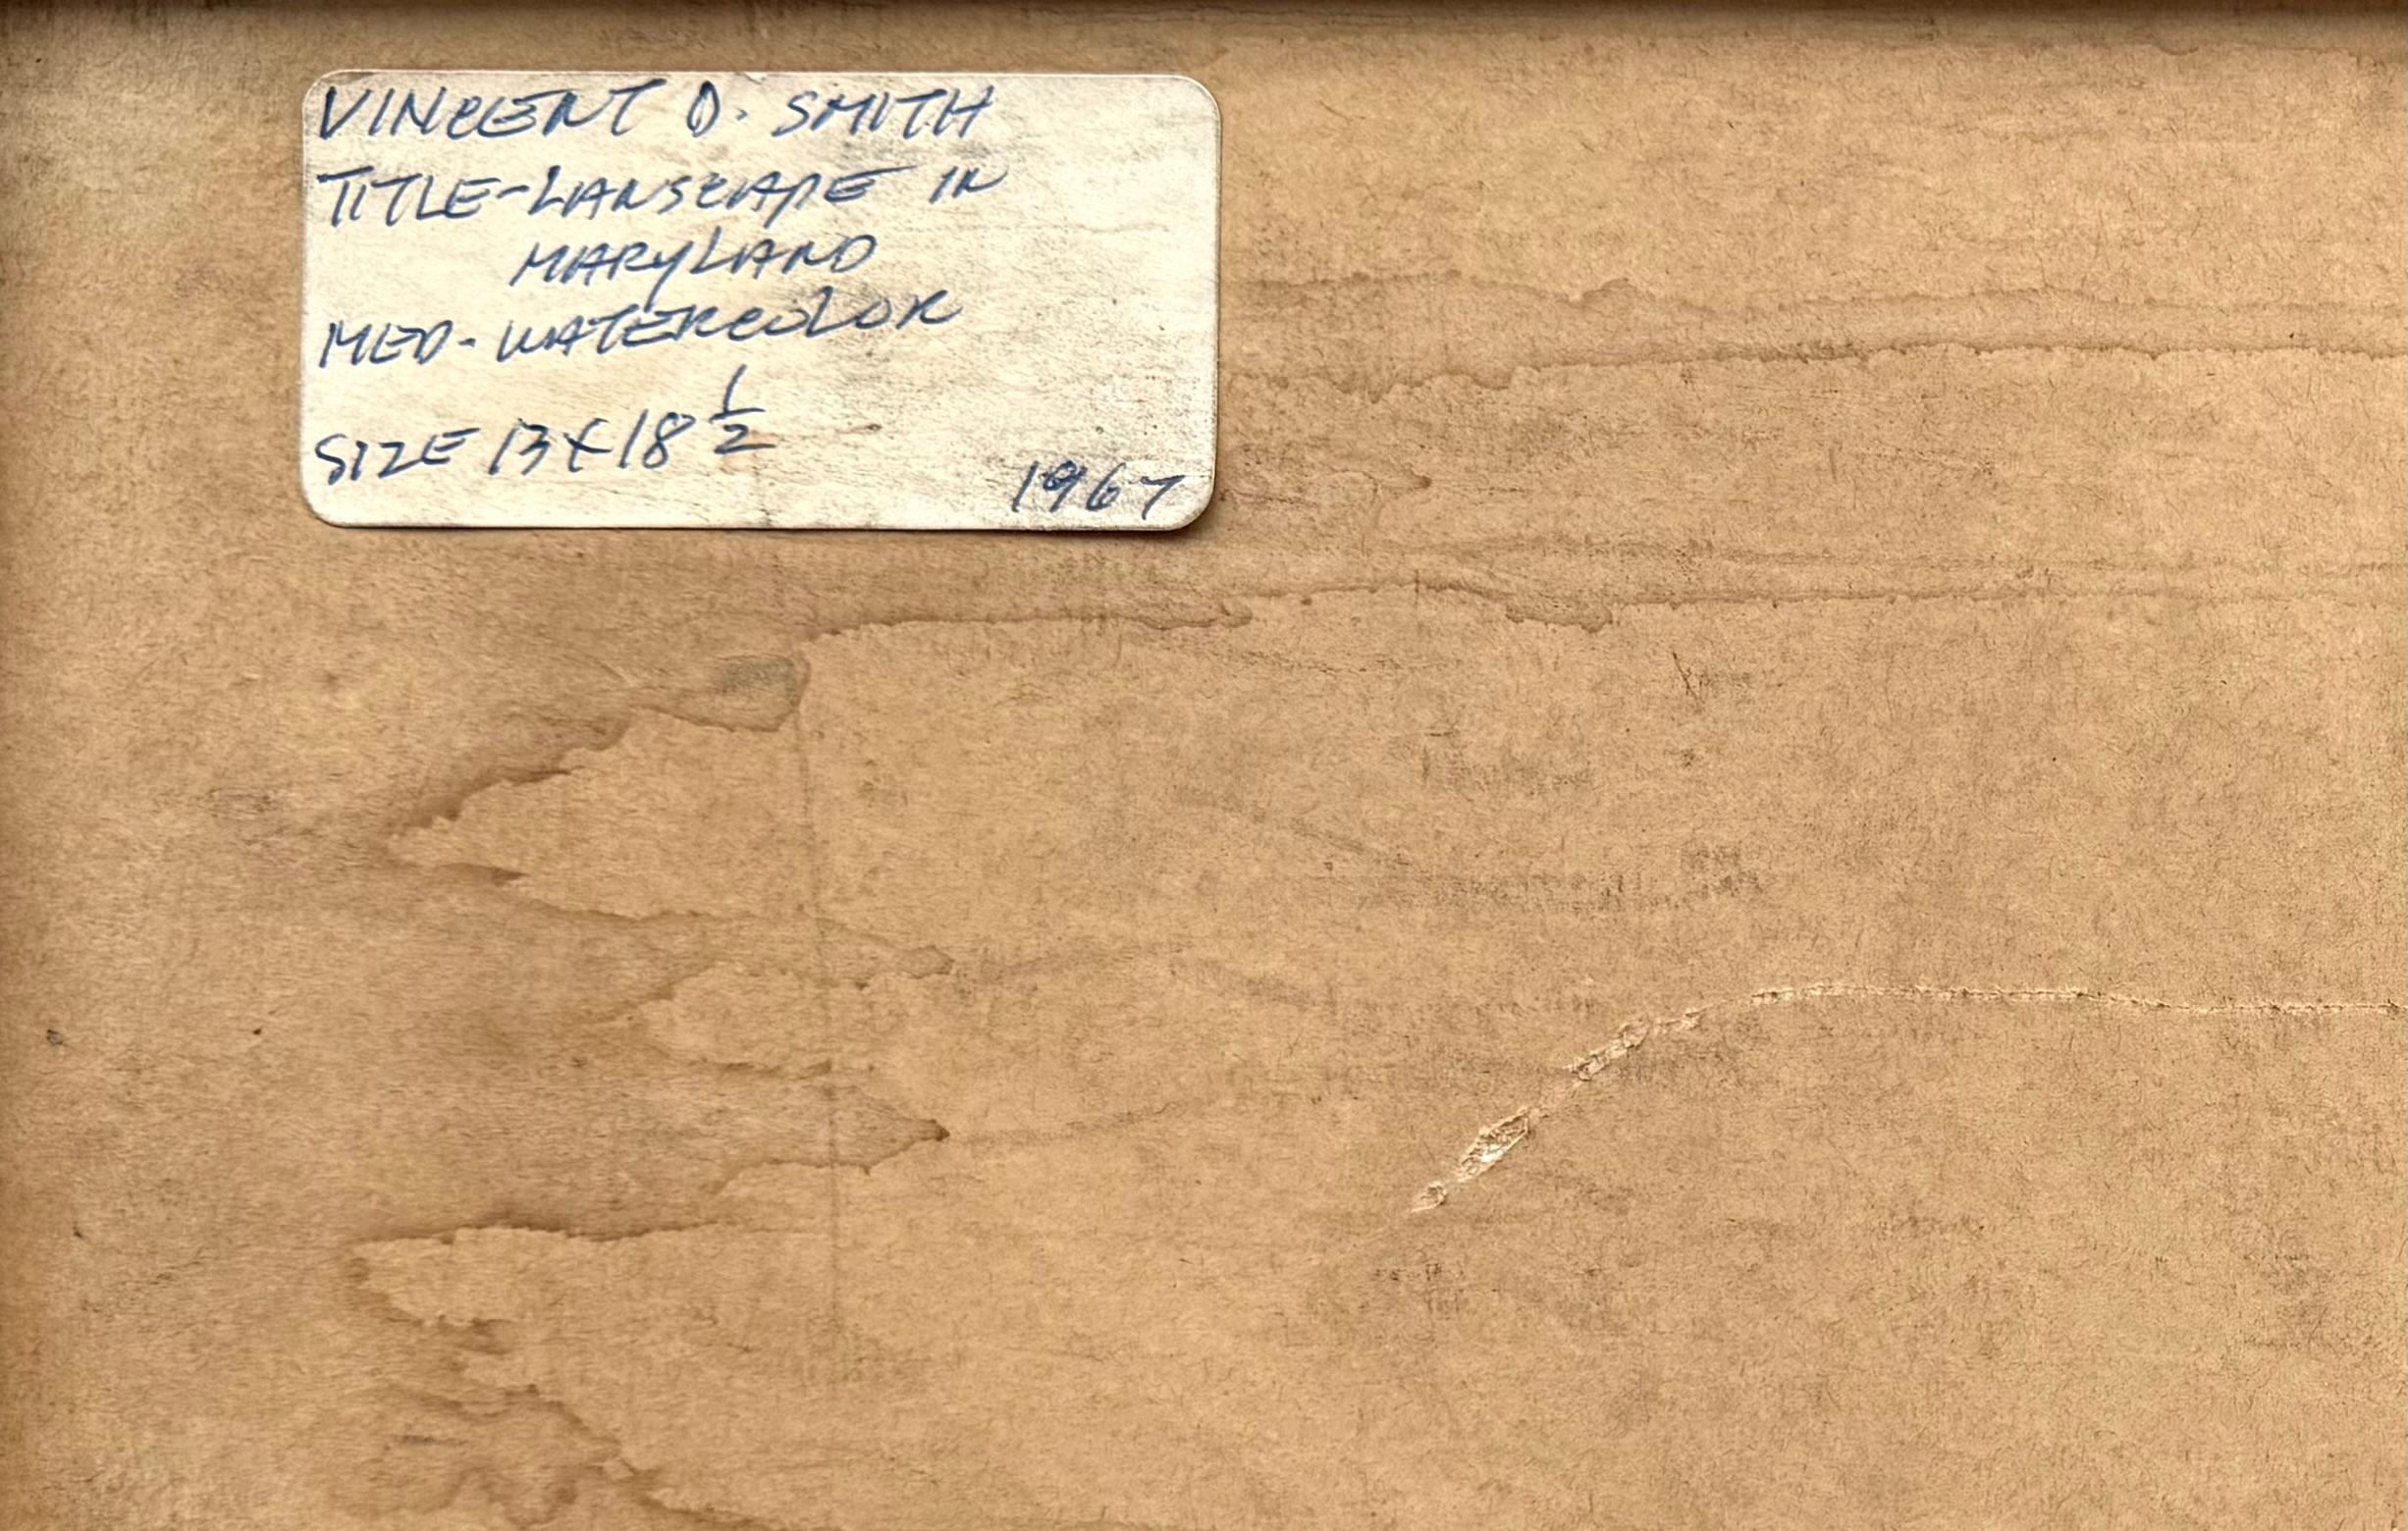 VINCENT D. SMITH
TITLE-LANSCAPE IN
MARYLAND
MED-WATERCOLOR
SIZE 13X18 1/2
1967